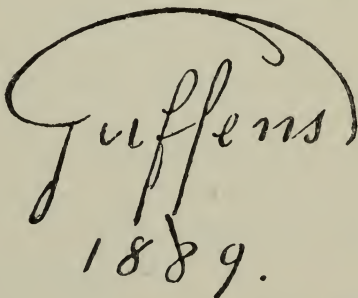 Guffens
1889.